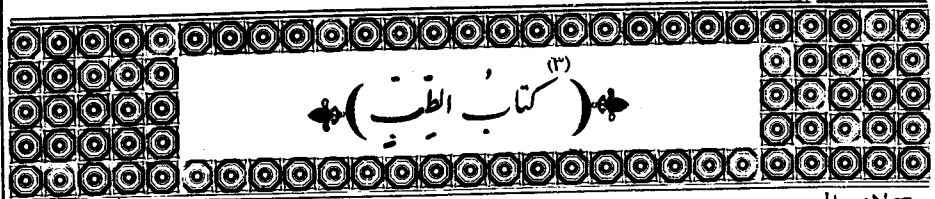 (٣)
﴿ كتابُ الطِّبِّ ﴾